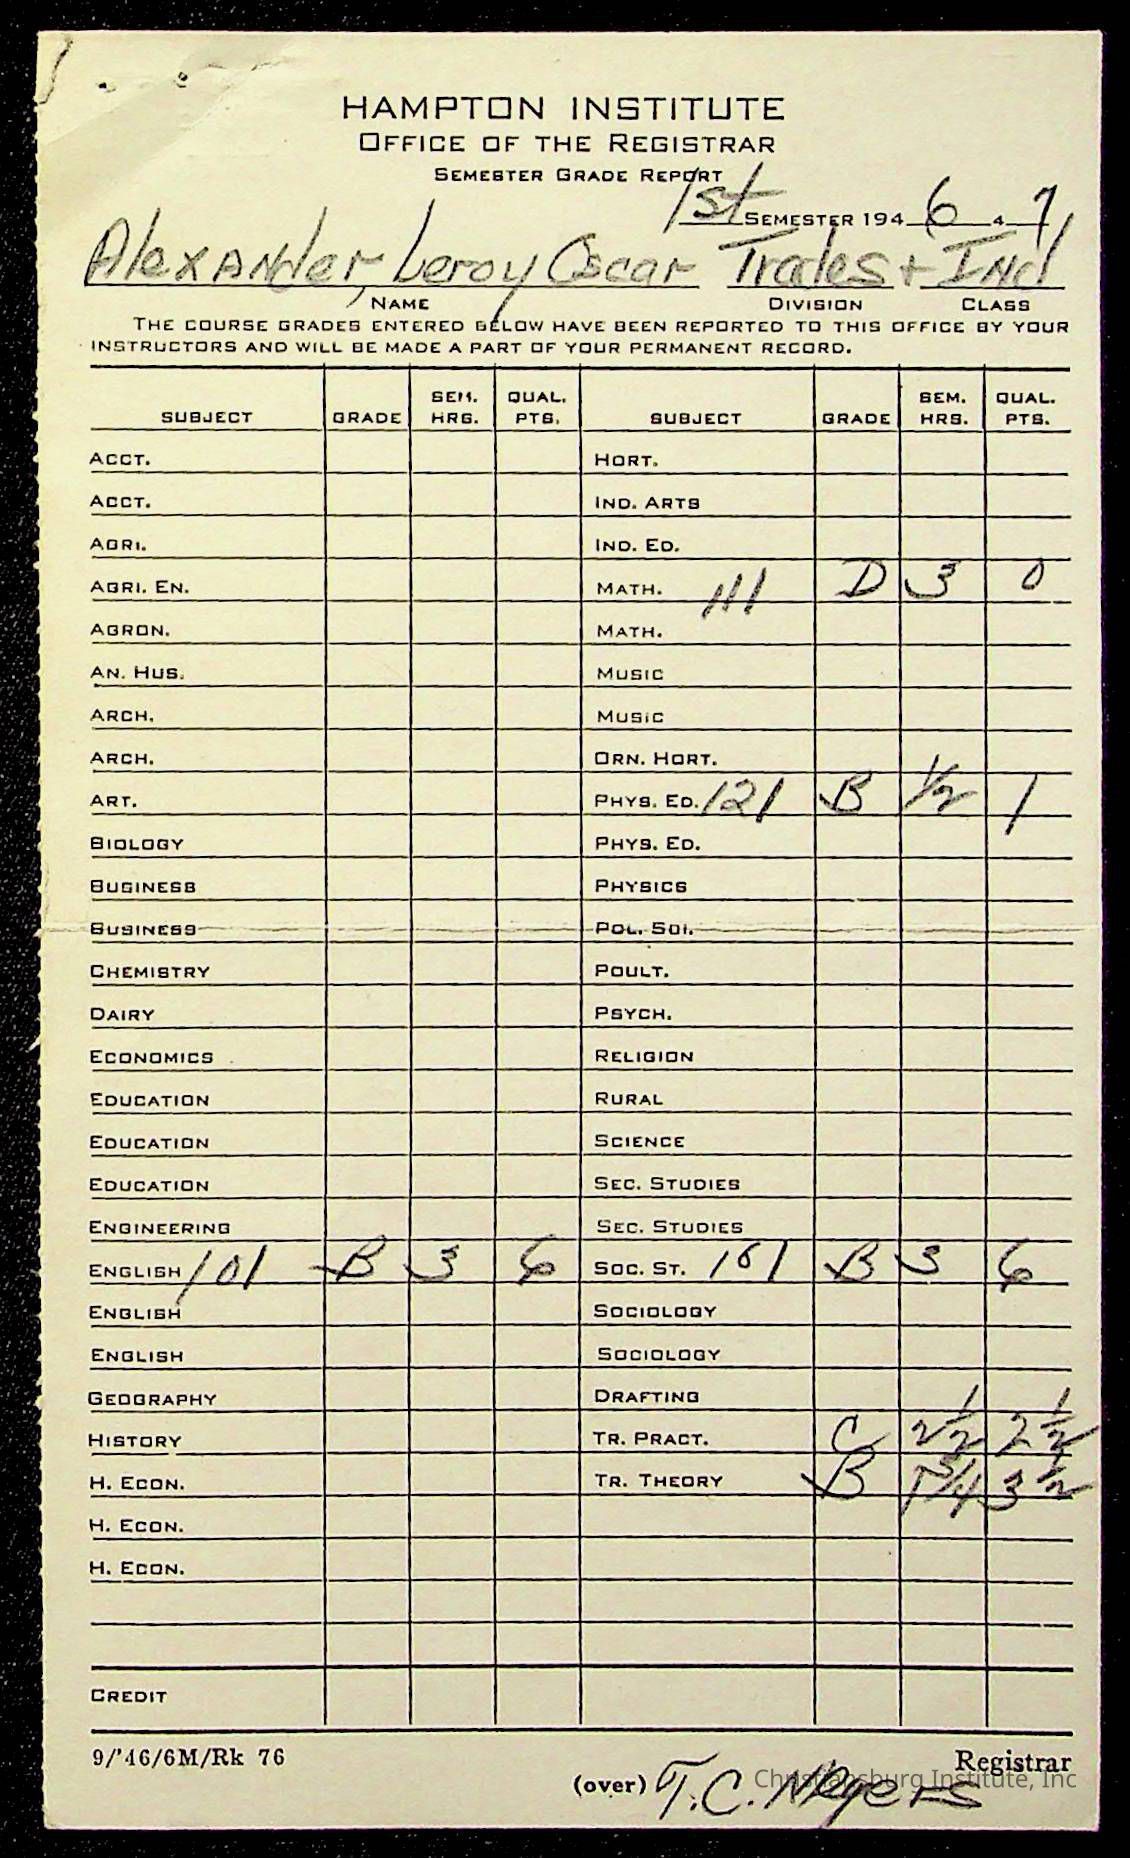 HAMPTON INSTITUTE
OFFICE OF THE REGISTRAR
SEMESTER GRADE REPORT
1st SEMESTER 194 6 4 7
Alexander, Leroy Oscar Trades + Ind
NAME DIVISION CLASS
THE COURSE GRADES ENTERED BELOW HAVE BEEN REPORTED TO THIS OFFICE BY YOUR
INSTRUCTORS AND WILL BE MADE A PART OF YOUR PERMANENT RECORD.
SUBJECT GRADE SEM. HRS. QUAL. PTS. SUBJECT GRADE SEM. HRS. QUAL. PTS.
ACCT. HORT.
ACCT. IND. ARTS
AGRI. IND. ED.
AGRI. EN. MATH. 111 D 3 0
AGRON. MATH.
AN. HUS. MUSIC
ARCH. MUSIC
ARCH. ORN. HORT.
ART. PHYS. ED. 121 B 1/2 1
BIOLOGY PHYS. ED.
BUSINESS PHYSICS
BUSINESS POL. SCI.
CHEMISTRY POULT.
DAIRY PSYCH.
ECONOMICS RELIGION
EDUCATION RURAL
EDUCATION SCIENCE
EDUCATION SEC. STUDIES
ENGINEERING SEC. STUDIES
ENGLISH 101 B 3 6 SOC. ST. 161 B 3 6
ENGLISH SOCIOLOGY
ENGLISH SOCIOLOGY
GEOGRAPHY DRAFTING
HISTORY TR. PRACT. C 2 1/2 2 1/2
H. ECON. TR. THEORY B 1 3/4 3 1/2
H. ECON.
H. ECON.
CREDIT
9/'46/6M/Rk 76 Registrar
(over) T. C.
Christiansburg Institute, Inc